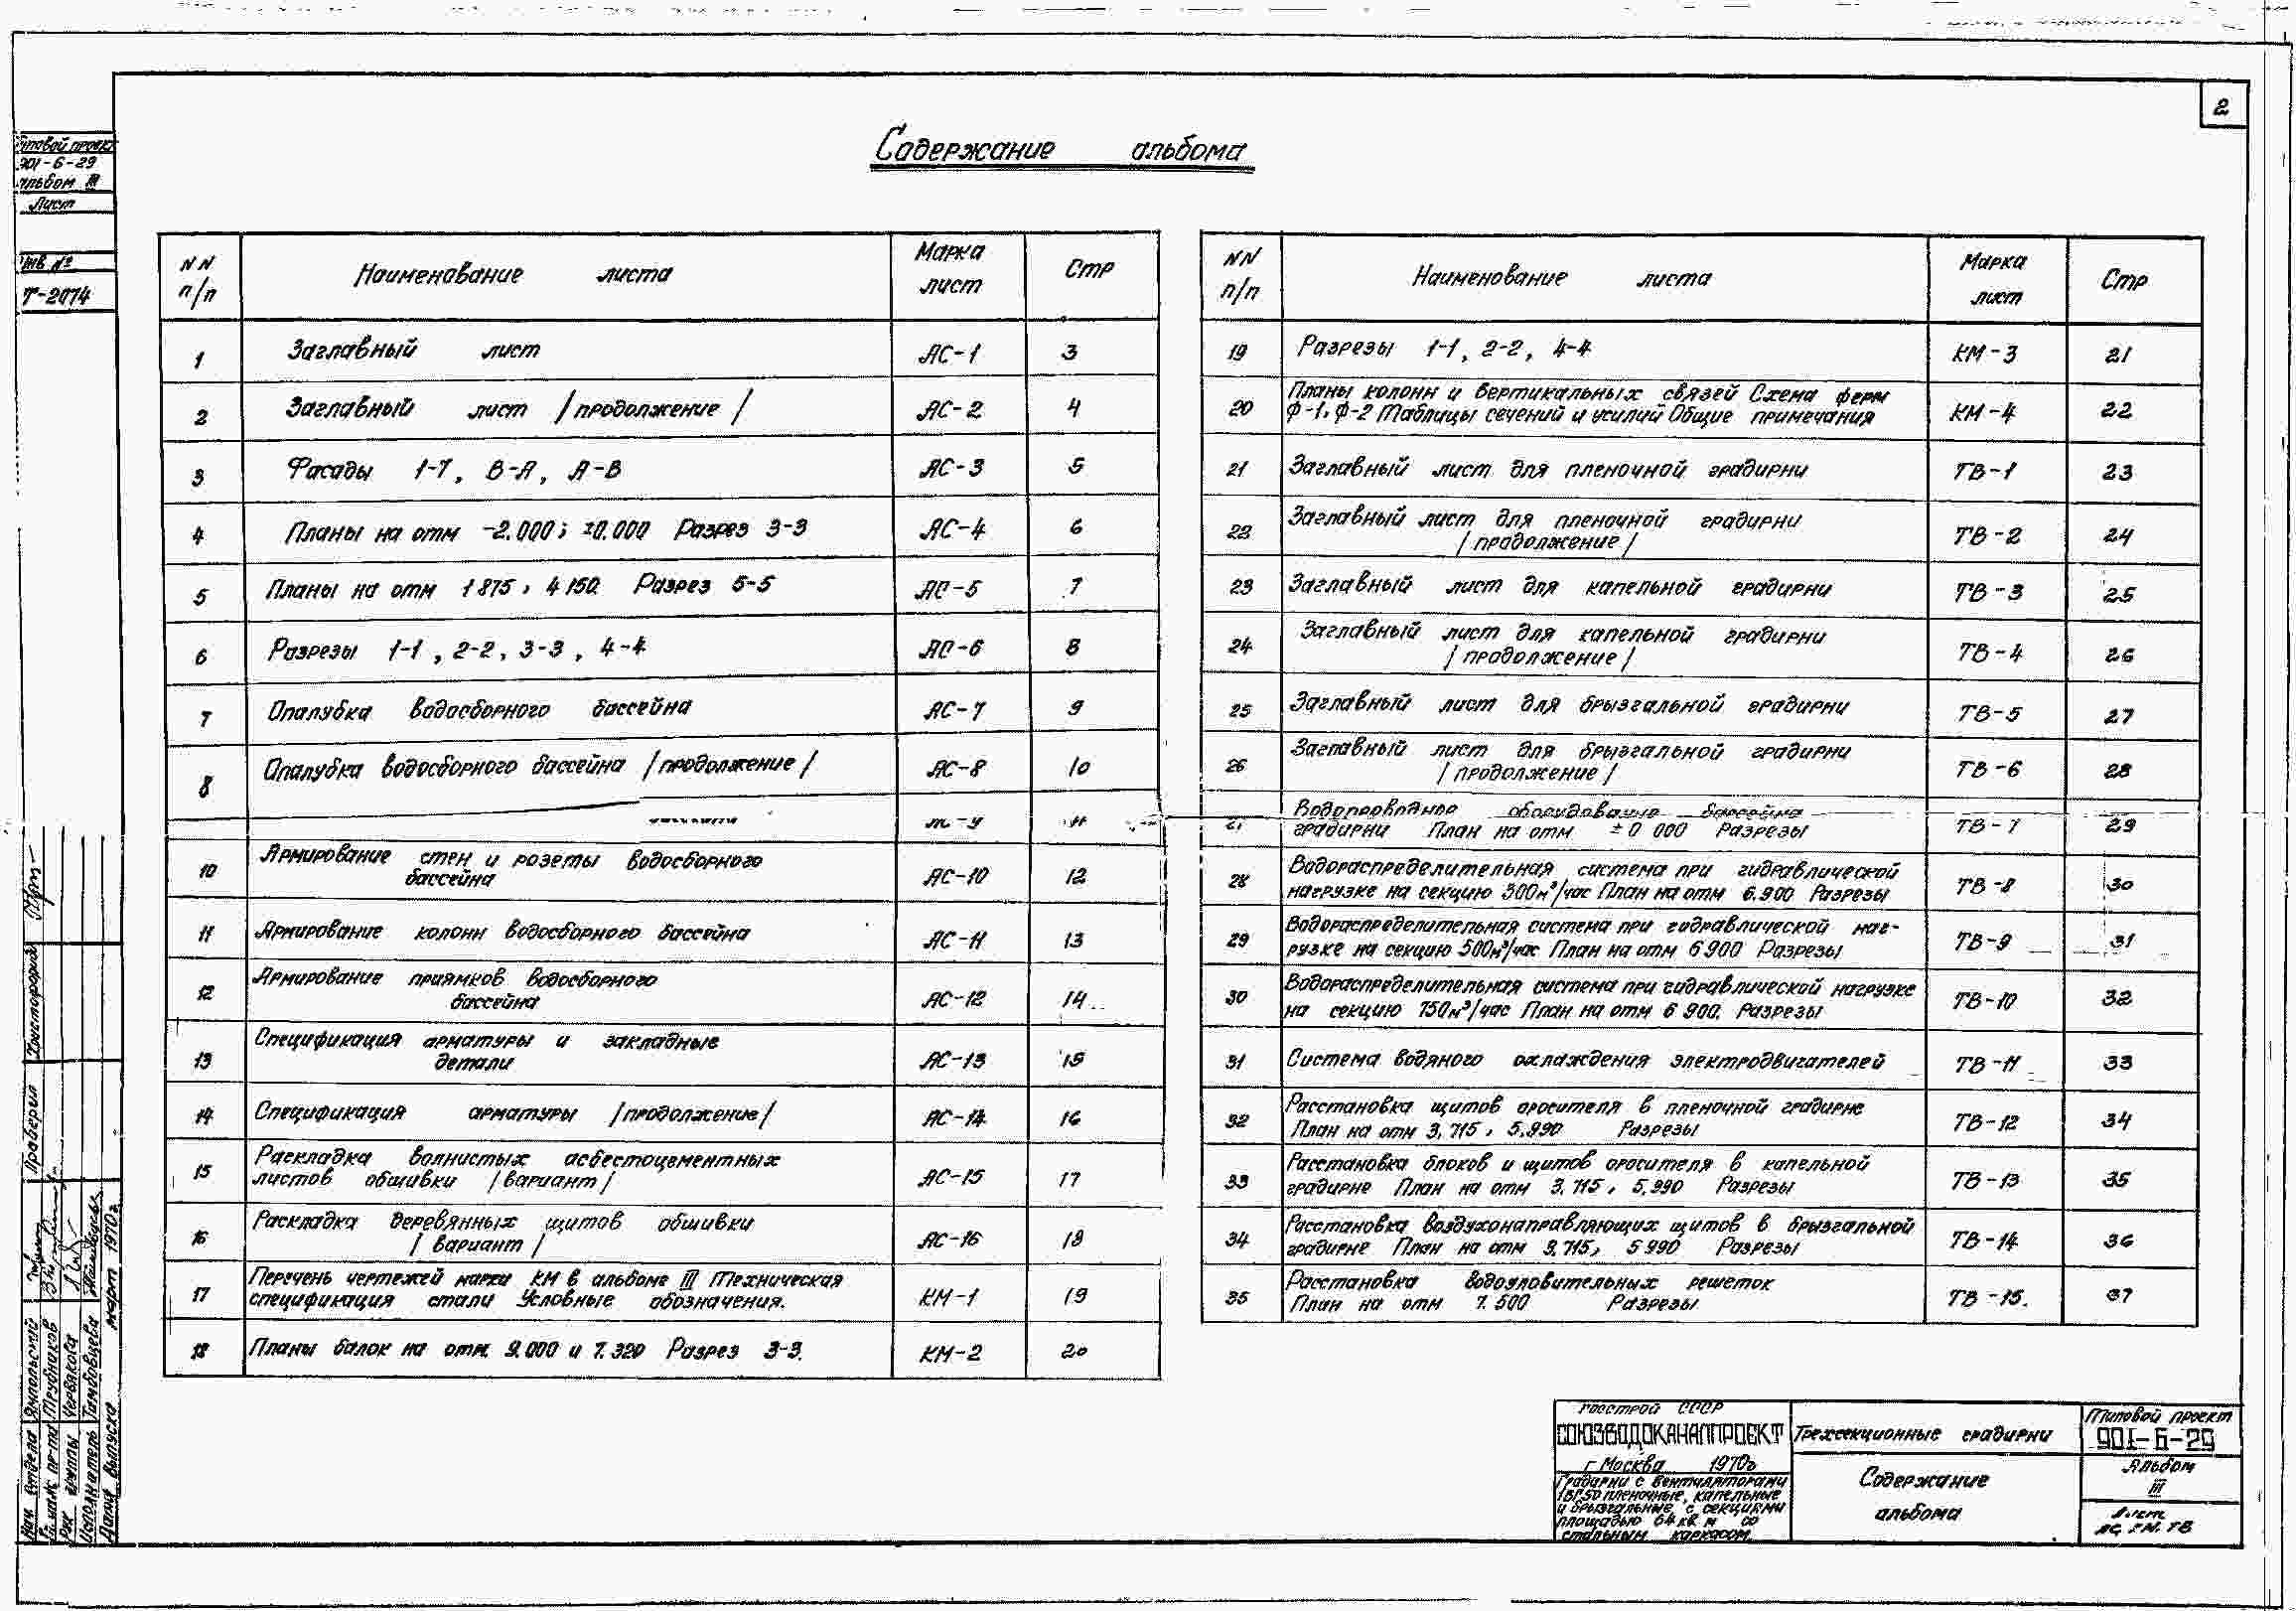 2
Содержание альбома
Типовой проект
901-6-29
альбом III
Лист
Инв №
Т-2074
NN п/п Наименование листа Марка лист Стр
1 Заглавный лист АС-1 3
2 Заглавный лист /продолжение/ АС-2 4
3 Фасады 1-7, В-А, А-В АС-3 5
4 Планы на отм -2.000; ±0.000 Разрез 3-3 АС-4 6
5 Планы на отм 1 875, 4 150. Разрез 5-5 АС-5 7
6 Разрезы 1-1, 2-2, 3-3, 4-4 АС-6 8
7 Опалубка водосборного бассейна АС-7 9
8 Опалубка водосборного бассейна /продолжение/ АС-8 10
10 Армирование стен и розеты водосборного
бассейна АС-10 12
11 Армирование колонн водосборного бассейна АС-11 13
12 Армирование приямков водосборного
бассейна АС-12 14
13 Спецификация арматуры и закладные
детали АС-13 15
14 Спецификация арматуры /продолжение/ АС-14 16
15 Раскладка волнистых асбестоцементных
листов обшивки /вариант/ АС-15 17
16 Раскладка деревянных щитов обшивки
/вариант/ АС-16 18
17 Перечень чертежей марки КМ в альбоме III Техническая
спецификация стали Условные обозначения. КМ-1 19
18 Планы балок на отм. 9.000 и 7.320 Разрез 3-3. КМ-2 20
NN п/п Наименование листа Марка лист Стр
19 Разрезы 1-1, 2-2, 4-4 КМ-3 21
20 Планы колонн и вертикальных связей Схема ферм
Ф-1, Ф-2 Таблицы сечений и усилий Общие примечания КМ-4 22
21 Заглавный лист для пленочной градирни ТВ-1 23
22 Заглавный лист для пленочной градирни
/продолжение/ ТВ-2 24
23 Заглавный лист для капельной градирни ТВ-3 25
24 Заглавный лист для капельной градирни
/продолжение/ ТВ-4 26
25 Заглавный лист для брызгальной градирни ТВ-5 27
26 Заглавный лист для брызгальной градирни
/продолжение/ ТВ-6 28
27 Водопроводное оборудование бассейна
градирни План на отм ±0 000 Разрезы ТВ-7 29
28 Водораспределительная система при гидравлической
нагрузке на секцию 300м³/час План на отм 6.900 Разрезы ТВ-8 30
29 Водораспределительная система при гидравлической наг-
рузке на секцию 500м³/час План на отм 6 900 Разрезы ТВ-9 31
30 Водораспределительная система при гидравлической нагрузке
на секцию 750м³/час План на отм 6 900. Разрезы ТВ-10 32
31 Система водяного охлаждения электродвигателей ТВ-11 33
32 Расстановка щитов оросителя в пленочной градирне
План на отм 3.715, 5.990 Разрезы ТВ-12 34
33 Расстановка блоков и щитов оросителя в капельной
градирне План на отм 3.715, 5.990 Разрезы ТВ-13 35
34 Расстановка воздухонаправляющих щитов в брызгальной
градирне План на отм 3.715, 5 990 Разрезы ТВ-14 36
35 Расстановка водоуловительных решеток
План на отм 7.500 Разрезы ТВ-15. 37
Проверил Христофорид
Нач отдела Ямпольский
Гл инж пр-та Трубников
Рук группы Червякова
Исполнитель Тамбовцева
Дата выпуска март 1970г.
Госстрой СССР
СОЮЗВОДОКАНАЛПРОЕКТ
г Москва 1970г
Градирни с вентиляторами
1ВГ50 пленочные, капельные
и брызгальные, с секциями
площадью 64 кв м со
стальным каркасом.
Трехсекционные градирни
Содержание
альбома
Типовой проект
901-6-29
Альбом
III
Лист
АС, КМ, ТВ